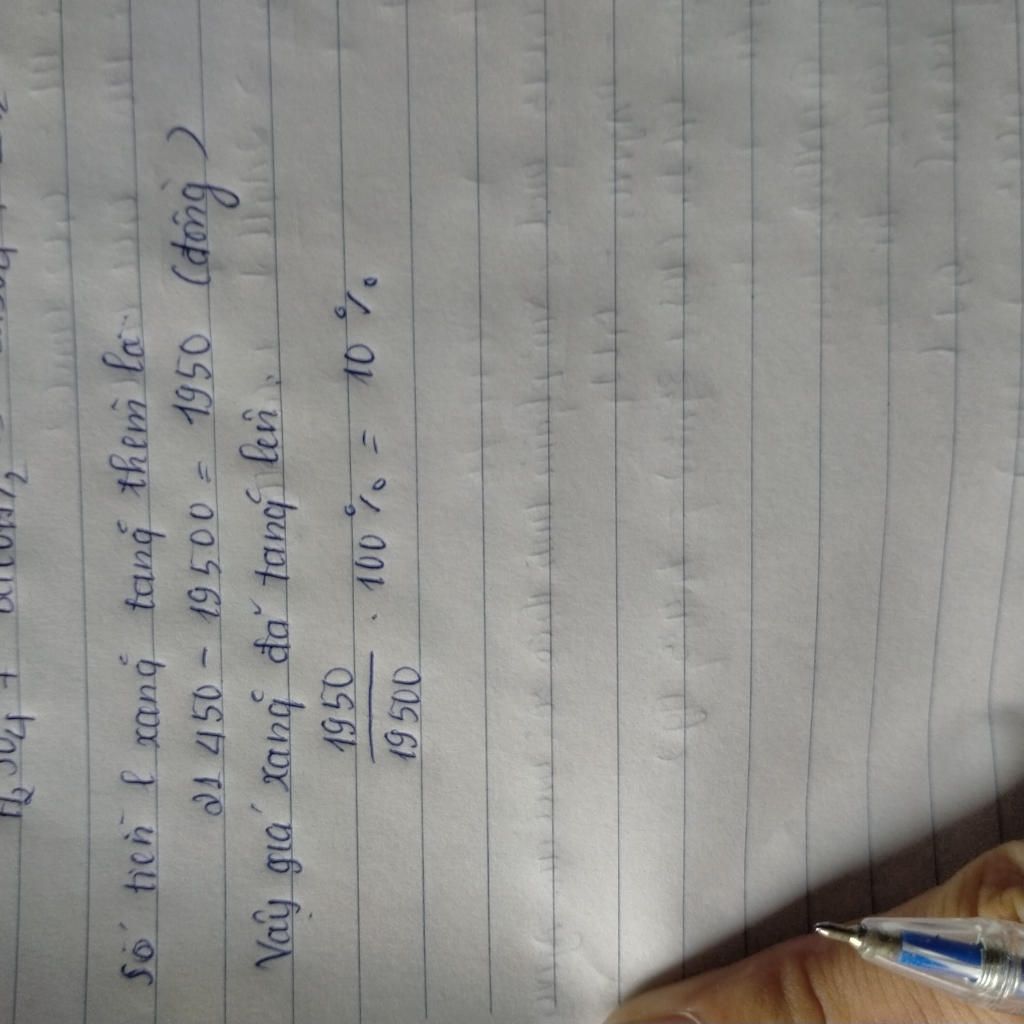 H₂SO₄ +
Số tiền l xăng tăng thêm là
21 450 - 19500 = 1950 (đồng)
Vậy giá xăng đã tăng lên:
1950
19500
. 100 % = 10 %